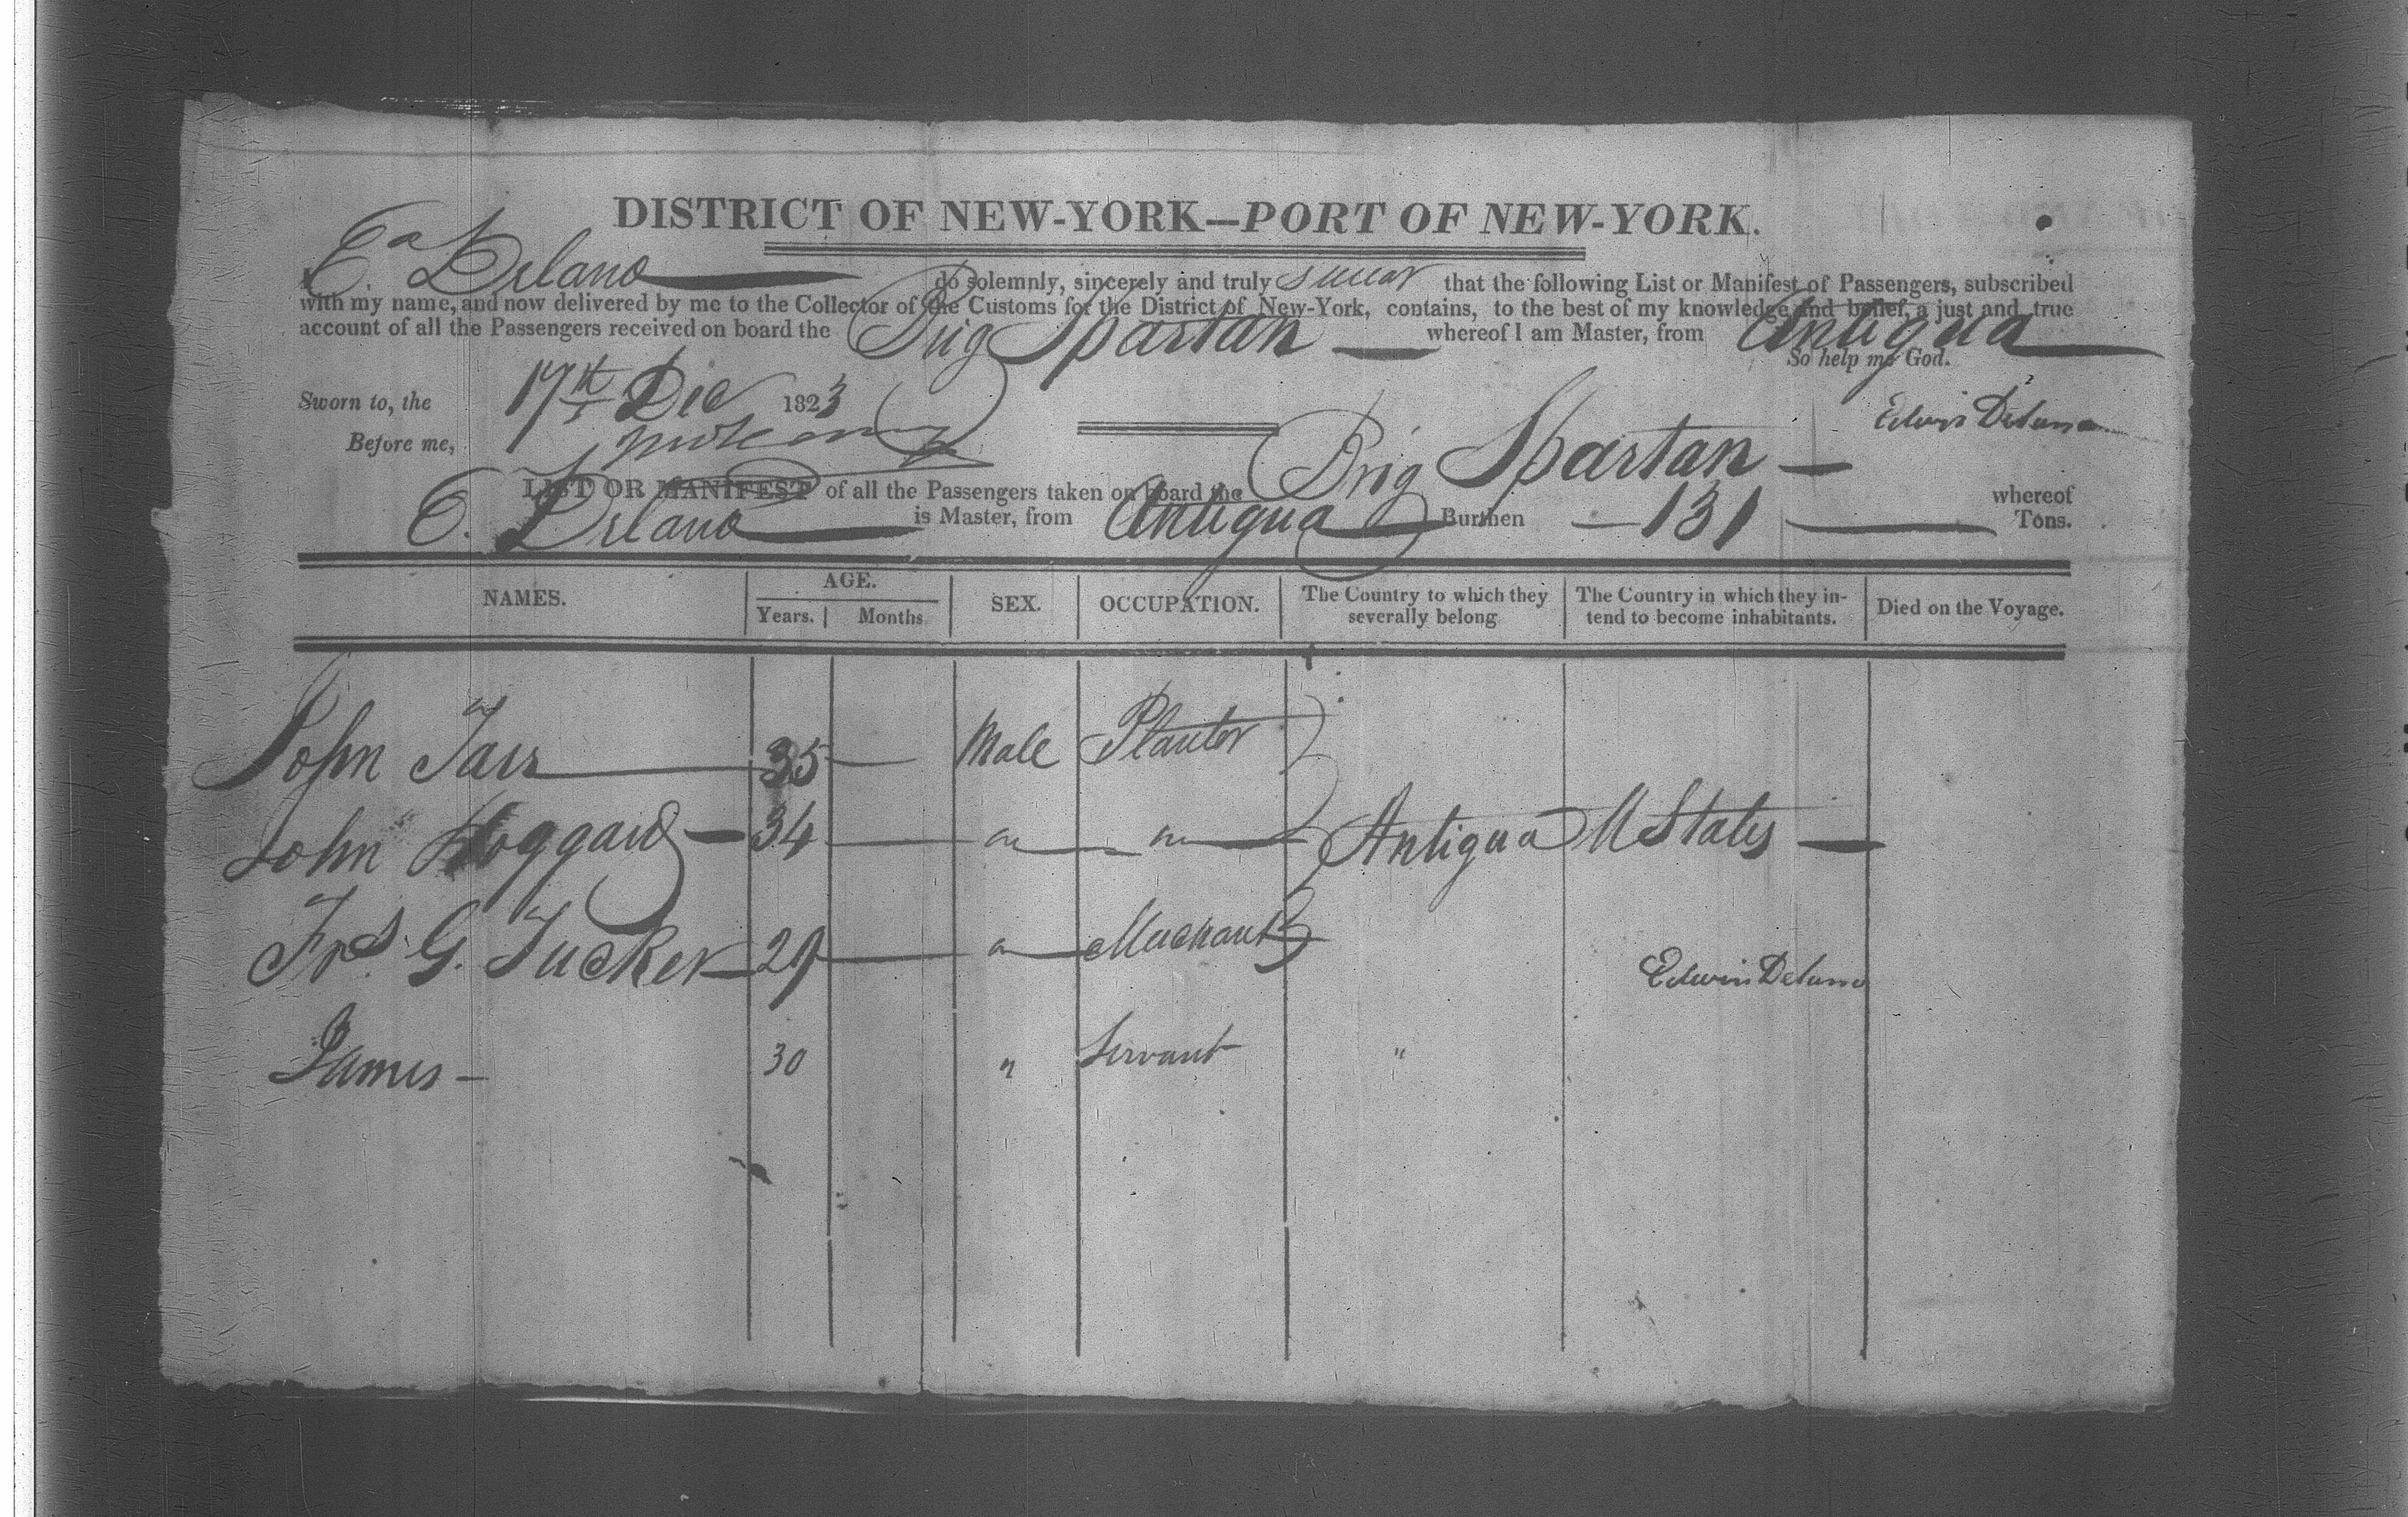 DISTRICT OF NEW-YORK—PORT OF NEW-YORK.
Ed Delano do solemnly, sincerely and truly swear that the following List or Manifest of Passengers, subscribed
with my name, and now delivered by me to the Collector of the Customs for the District of New-York, contains, to the best of my knowledge and belief, a just and true
account of all the Passengers received on board the Brig Spartan whereof I am Master, from Antigua
So help me God.
Sworn to, the 17th Dec 1823
Edwin Delano
Before me,
LIST OR MANIFEST of all the Passengers taken on board the Brig Spartan — whereof
E. Delano is Master, from Antigua Burthen — 131 Tons.
NAMES. AGE. Years. Months SEX. OCCUPATION. The Country to which they severally belong The Country in which they intend to become inhabitants. Died on the Voyage.
John 35 — Male Planter
John Hoggard — 34 — " " Antigua U States —
Frs. G. Tucker 29 — " Merchant
Edwin Delano
James — 30 " Servant "